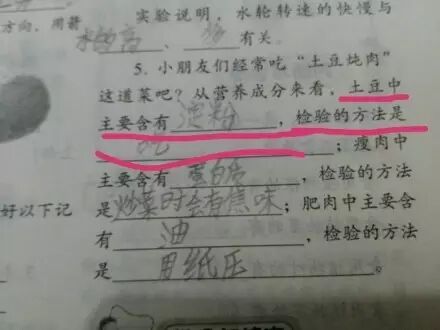 实验说明，水轮转速的快慢与
方向，用箭
水的高、多有关。
5. 小朋友们经常吃“土豆炖肉”
这道菜吧？从营养成分来看，土豆中
主要含有淀粉，检验的方法是
；瘦肉中
主要含有蛋白质，检验的方法
好以下记
是炒菜时会有焦味；肥肉中主要含
有油，检验的方法
是用纸压。